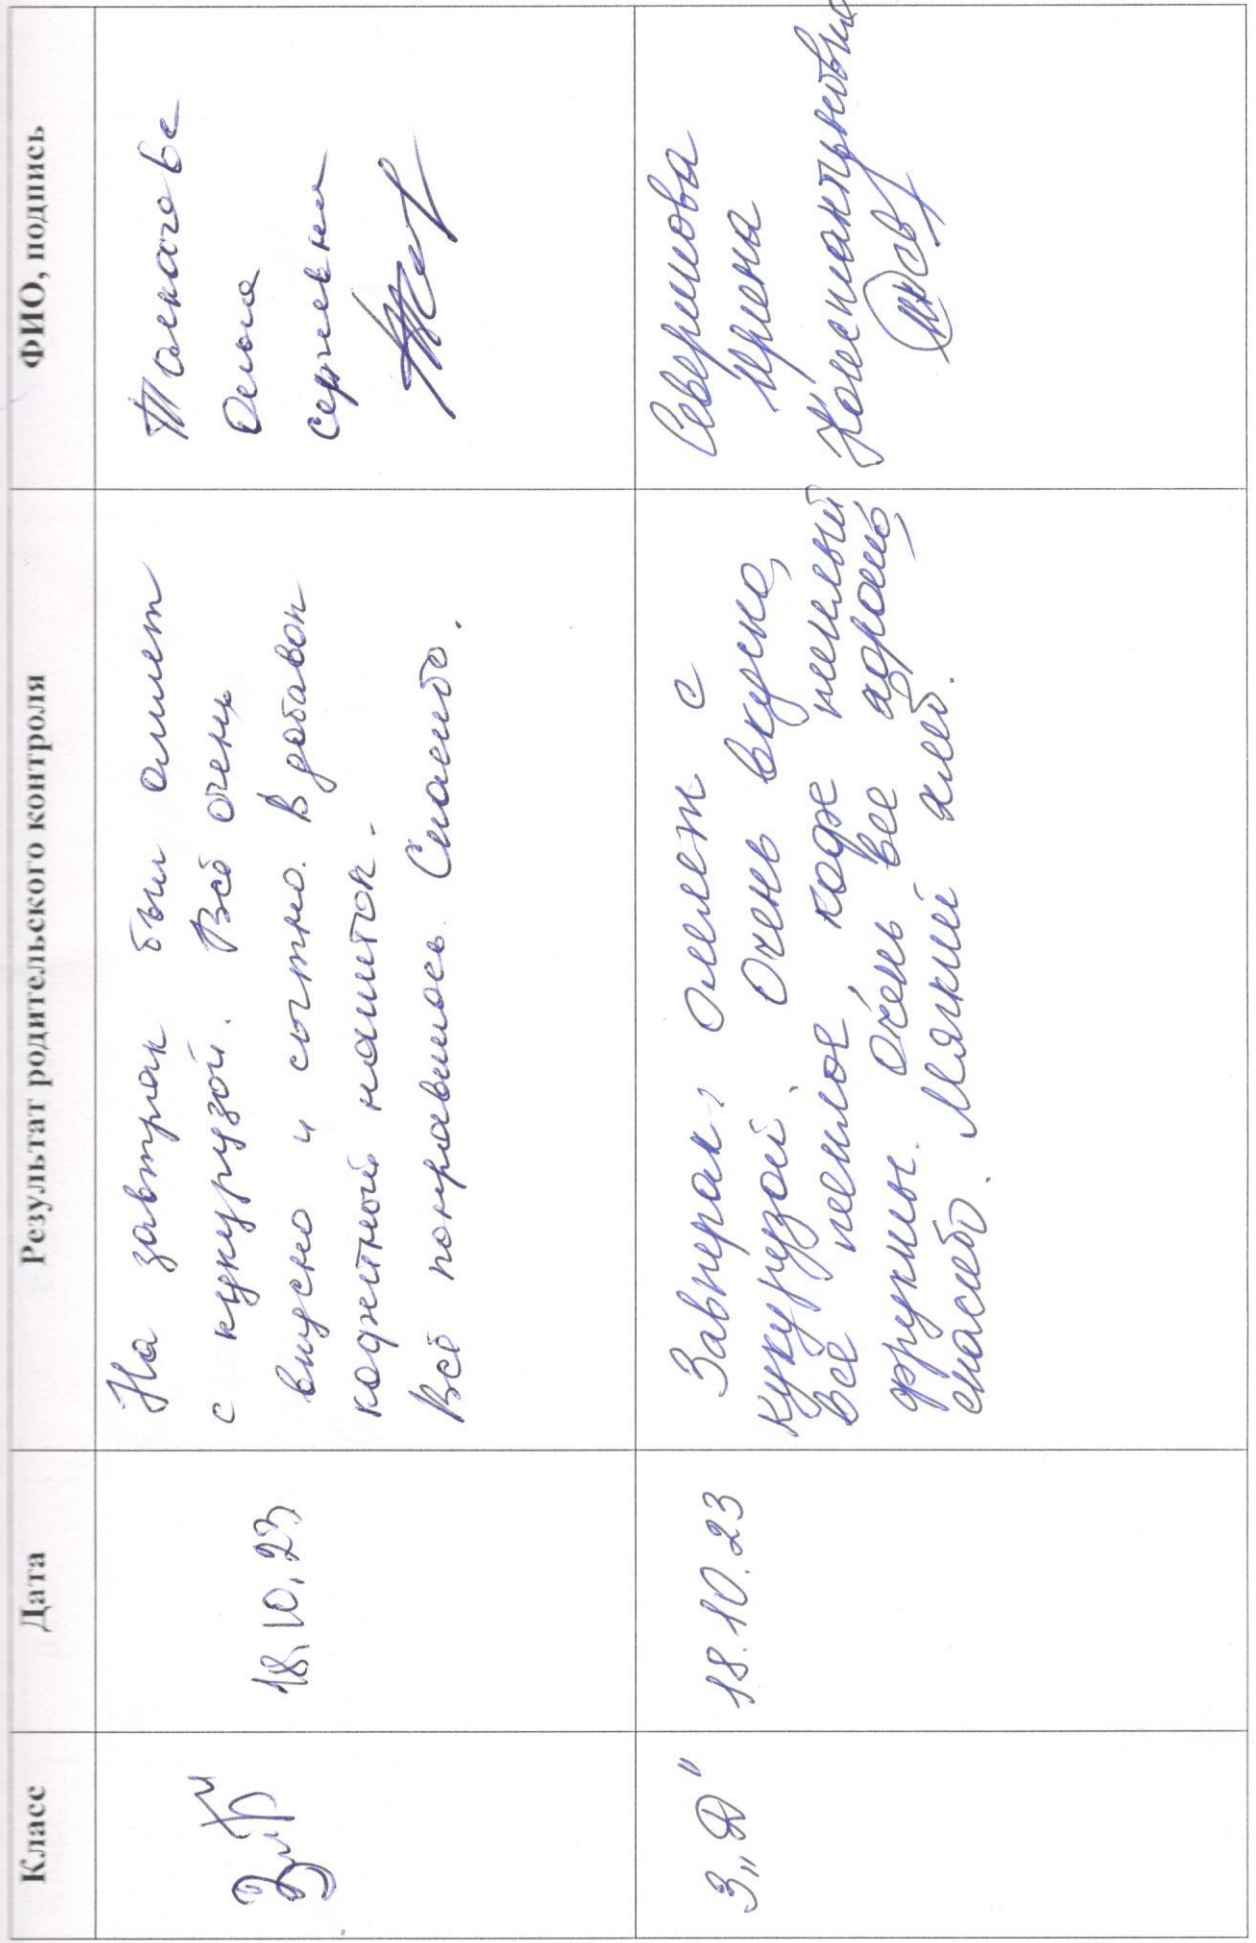 Класс
Дата
Результат родительского контроля
ФИО, подпись
18.10.23
На завтрак был омлет
с кукурузой. Всё очень
вкусно и сытно. В добавок
кофейный напиток.
Всё понравилось. Спасибо.
Ольга
Сергеевна
3 „Д"
18.10.23
Завтрак: Омлет с
кукурузой. Очень вкусно,
всё теплое, кофе теплый
фрукты. Очень все хорошо,
спасибо. Мягкий хлеб.
Ирина
Константиновна